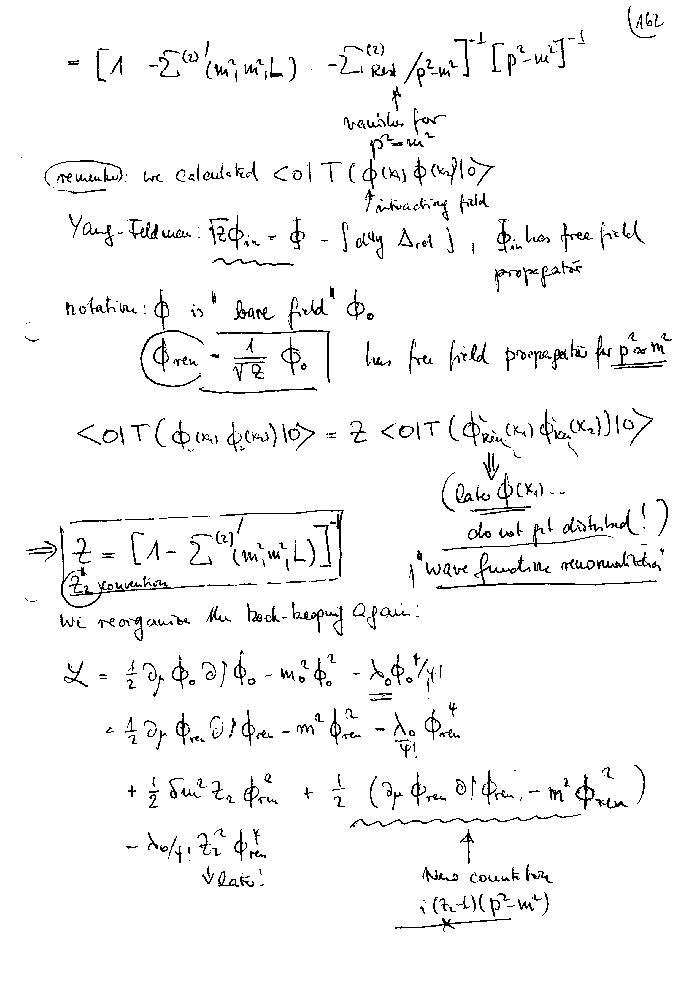 162
= [1 - Σ^(2)'(m², m², L) - Σ^(2)_Rest /p²-m²]^-1 [p²-m²]^-1
vanishes for
p²=m²
remember: we calculated <0|T(ϕ(x₁) ϕ(x₂))|0>
interacting field
Yang-Feldman: √Z ϕ_in = ϕ - ∫d⁴y Δ_ret j, ϕ_in has free field
propagator
notation: ϕ is "bare field" ϕ₀
ϕ_ren = 1/√Z ϕ₀ has free field propagator for p²≈m²
<0|T(ϕ₀(x₁) ϕ₀(x₂))|0> = Z <0|T(ϕ_ren(x₁) ϕ_ren(x₂))|0>
(later ϕ(x₁)...
do not get disturbed!)
⇒ Z = [1 - Σ^(2)'(m², m², L)]^-1
"wave function renormalization"
Z₂ convention
We reorganize the book-keeping again:
ℒ = ½ ∂_μ ϕ₀ ∂^μ ϕ₀ - m₀² ϕ₀² - λ₀ ϕ₀⁴/4!
= ½ ∂_μ ϕ_ren ∂^μ ϕ_ren - m² ϕ_ren² - λ₀/4! ϕ_ren⁴
+ ½ δm² Z₂ ϕ_ren² + ½ (∂_μ ϕ_ren ∂^μ ϕ_ren - m² ϕ_ren²)
- λ₀/4! Z₂² ϕ_ren⁴
↓ later!
New counterterm
i(Z₂-1)(p²-m²)